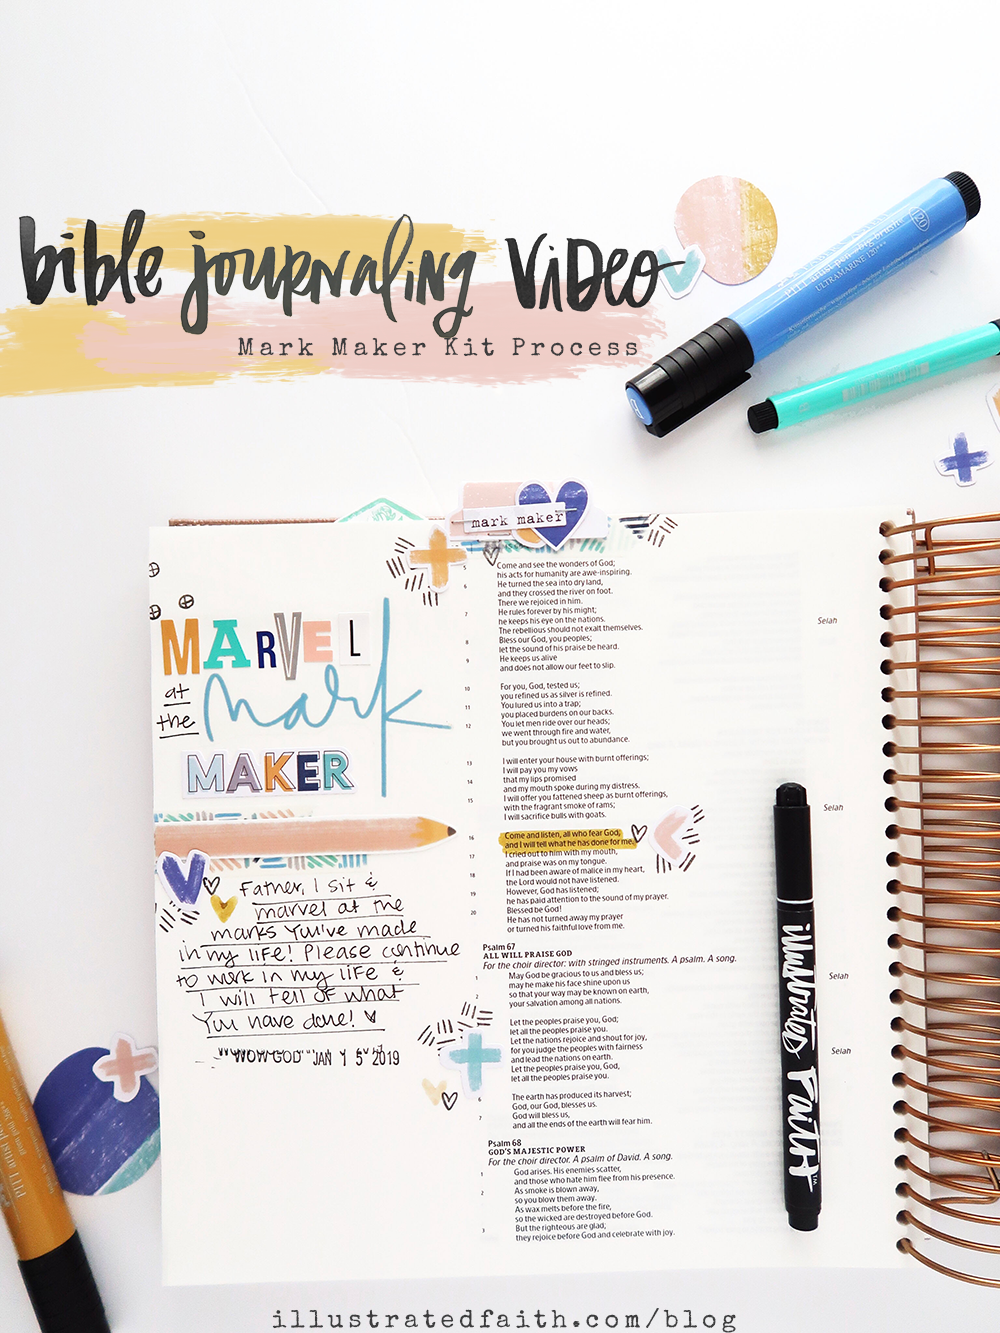 bible journaling video
Mark Maker Kit Process
ULTRAMARINE 120***
mark maker
MARVEL
at
the
mark
MAKER
Father, I sit &
marvel at the
marks You've made
in my life! Please continue
to work in my life &
I will tell of what
You have done!
WOW GOD JAN 15 2019
5 Come and see the wonders of God;
his acts for humanity are awe-inspiring.
6 He turned the sea into dry land,
and they crossed the river on foot.
There we rejoiced in him.
7 He rules forever by his might;
he keeps his eye on the nations.
The rebellious should not exalt themselves. Selah
8 Bless our God, you peoples;
let the sound of his praise be heard.
9 He keeps us alive
and does not allow our feet to slip.
10 For you, God, tested us;
you refined us as silver is refined.
11 You lured us into a trap;
you placed burdens on our backs.
12 You let men ride over our heads;
we went through fire and water,
but you brought us out to abundance.
13 I will enter your house with burnt offerings;
I will pay you my vows
14 that my lips promised
and my mouth spoke during my distress.
15 I will offer you fattened sheep as burnt offerings,
with the fragrant smoke of rams;
I will sacrifice bulls with goats. Selah
16 Come and listen, all who fear God,
and I will tell what he has done for me.
17 I cried out to him with my mouth,
and praise was on my tongue.
18 If I had been aware of malice in my heart,
the Lord would not have listened.
19 However, God has listened;
he has paid attention to the sound of my prayer.
20 Blessed be God!
He has not turned away my prayer
or turned his faithful love from me.
Psalm 67
ALL WILL PRAISE GOD
For the choir director: with stringed instruments. A psalm. A song.
1 May God be gracious to us and bless us;
may he make his face shine upon us Selah
2 so that your way may be known on earth,
your salvation among all nations.
Let the peoples praise you, God;
let all the peoples praise you.
Let the nations rejoice and shout for joy,
for you judge the peoples with fairness
and lead the nations on earth. Selah
Let the peoples praise you, God,
let all the peoples praise you.
6 The earth has produced its harvest;
God, our God, blesses us.
7 God will bless us,
and all the ends of the earth will fear him.
Psalm 68
GOD'S MAJESTIC POWER
For the choir director. A psalm of David. A song.
1 God arises. His enemies scatter,
and those who hate him flee from his presence.
2 As smoke is blown away,
so you blow them away.
As wax melts before the fire,
so the wicked are destroyed before God.
3 But the righteous are glad;
they rejoice before God and celebrate with joy.
illustrated Faith™
illustratedfaith.com/blog